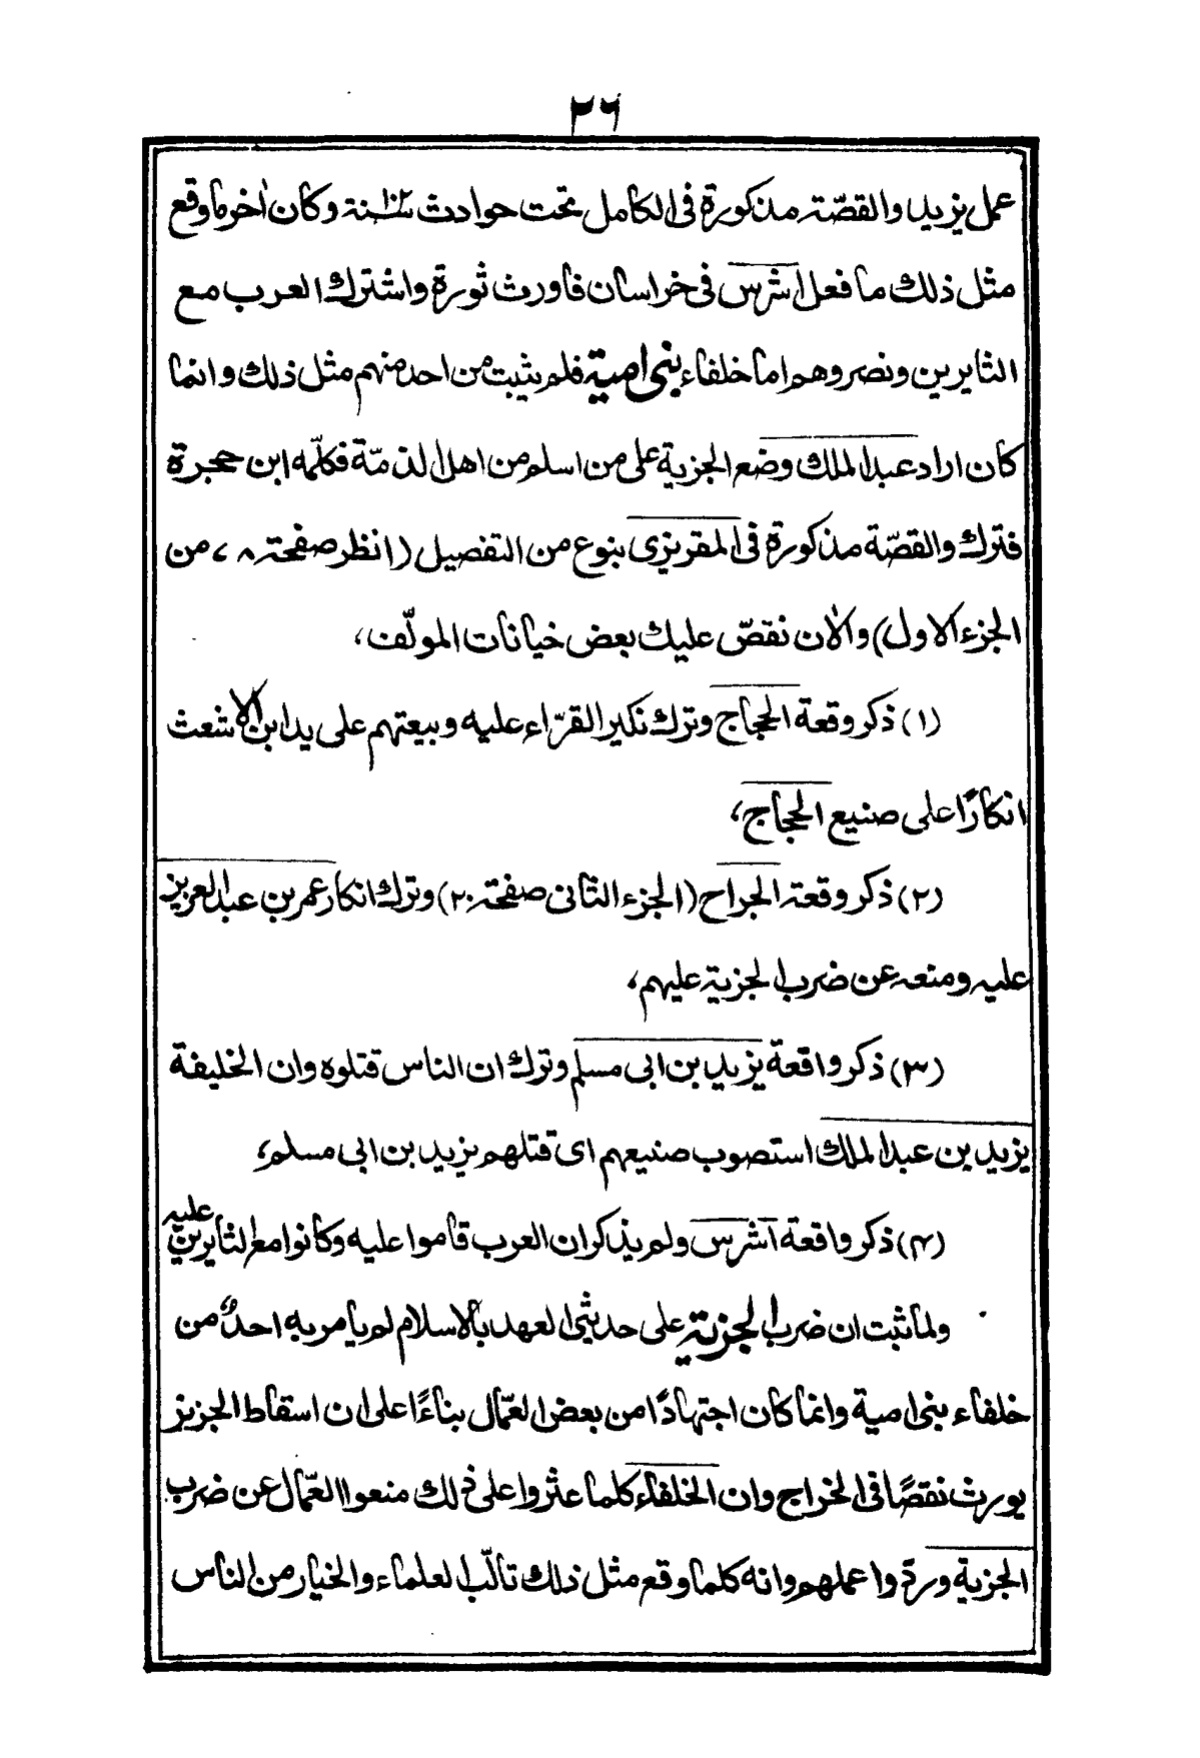 ٢٦
عمل يزيد والقصّة مذكورة فى الكامل تحت حوادث سنة ١٠٢ وكان اٰخر ما وقع
مثل ذلك ما فعل اشرس فى خراسان فاورث ثورة واشترك العرب مع
الثايرين ونصروهم اما خلفاء بنى امية فلم يثبت من احد منهم مثل ذلك وانما
كان اراد عبد الملك وضع الجزية على من اسلم من اهل الذمّة فكلّمه ابن حجرة
فترك والقصّة مذكورة فى المقريزى بنوع من التفصيل (انظر صفحة ٧٨ من
الجزء الاول) والاٰن نقصّ عليك بعض خيانات المولّف،
(١) ذكر وقعة الحجاج وترك نكير القرّاء عليه وبيعتهم على يد ابن الاشعث
انكارًا على صنيع الحجاج،
(٢) ذكر وقعة الجراح (الجزء الثانى صفحة ٢٠) وترك انكار عمر بن عبد العزيز
عليه ومنعه عن ضرب الجزية عليهم،
(٣) ذكر واقعة يزيد بن ابى مسلم وترك ان الناس قتلوه وان الخليفة
يزيد بن عبد الملك استصوب صنيعهم اى قتلهم يزيد بن ابى مسلم،
(۴) ذكر واقعة اشرس ولم يذكر ان العرب قاموا عليه وكانوا مع الثايرين عليه
ولما ثبت ان ضرب الجزية على حديثى العهد بالاسلام لم يامر به احدٌ من
خلفاء بنى امية وانما كان اجتهادًا من بعض العمّال بناءًا على ان اسقاط الجزيز
يورث نقصًا فى الخراج وان الخلفاء كلما عثروا على ذلك منعوا العمّال عن ضرب
الجزية وردّوا عملهم وانه كلما وقع مثل ذلك تالّب العلماء والخيار من الناس